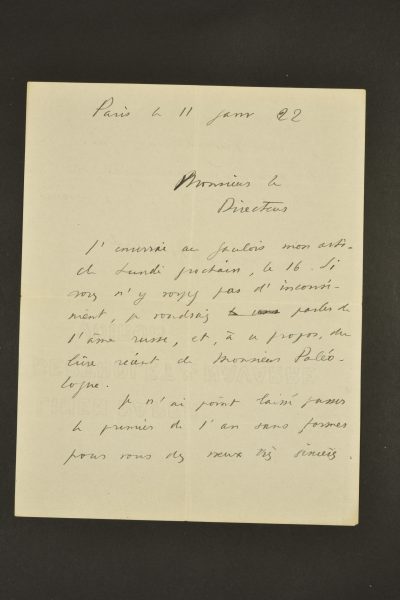 Paris le 11 janv 22
Monsieur le
Directeur
J'enverrai au Gaulois mon arti-
cle Lundi prochain, le 16. Si
vous n'y voyez pas d'inconvé-
nient, je voudrais parler de
l'âme russe, et, à ce propos, du
livre récent de Monsieur Paléo-
logue.
Je n'ai point laissé passer
le premier de l'an sans former
pour vous des vœux très sincères.